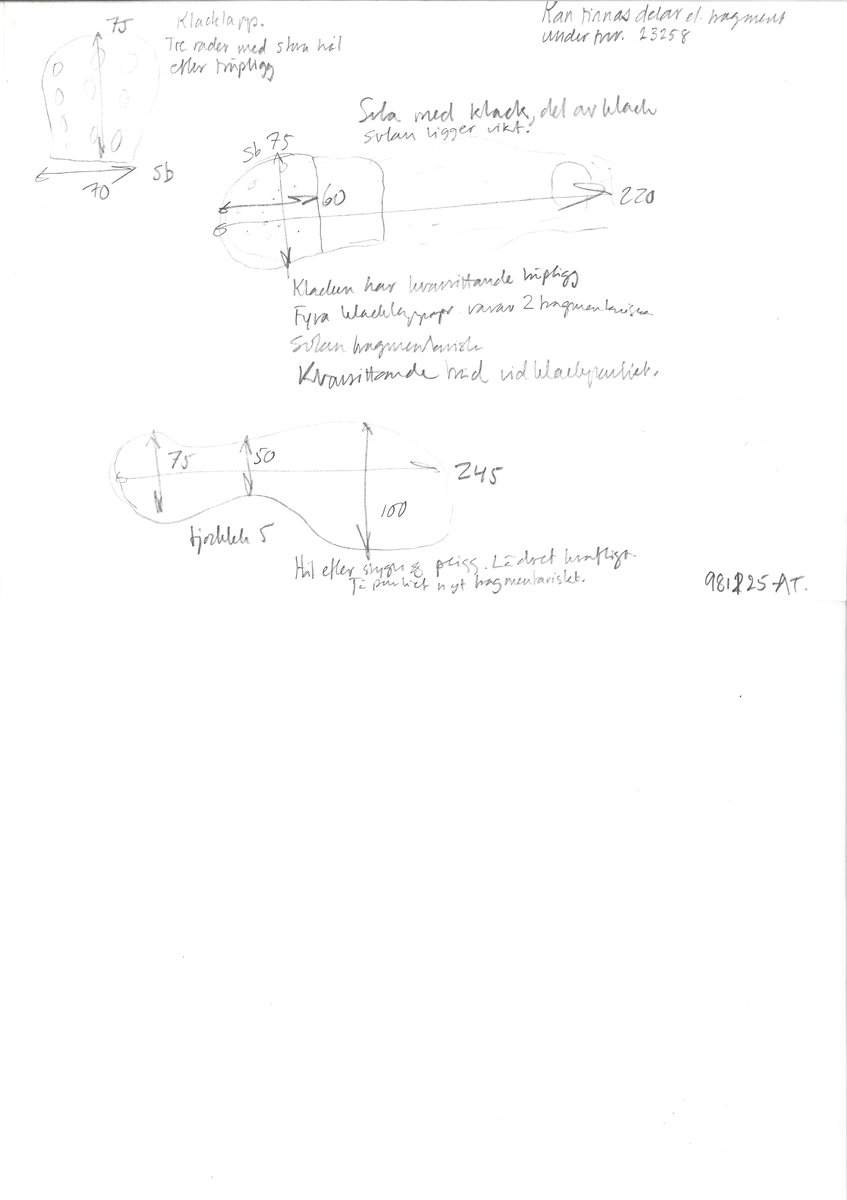 75
Klacklapp.
Tre rader med stora hål
efter träpligg
70
Sb
Kan finnas delar el. fragment
under fnr. 23258
Sula med klack, del av klack
sulan ligger vikt.
Sb 75
60
220
Klacken har kvarsittande träpligg
Fyra klacklappar varav 2 fragmentariska
Sulan fragmentarisk
Kvarsittande tråd vid klackpartiet.
75
50
245
100
tjocklek 5
Hål efter stygn & pligg. Lädret kraftigt.
Tåpartiet ngt fragmentariskt.
981125 AT.